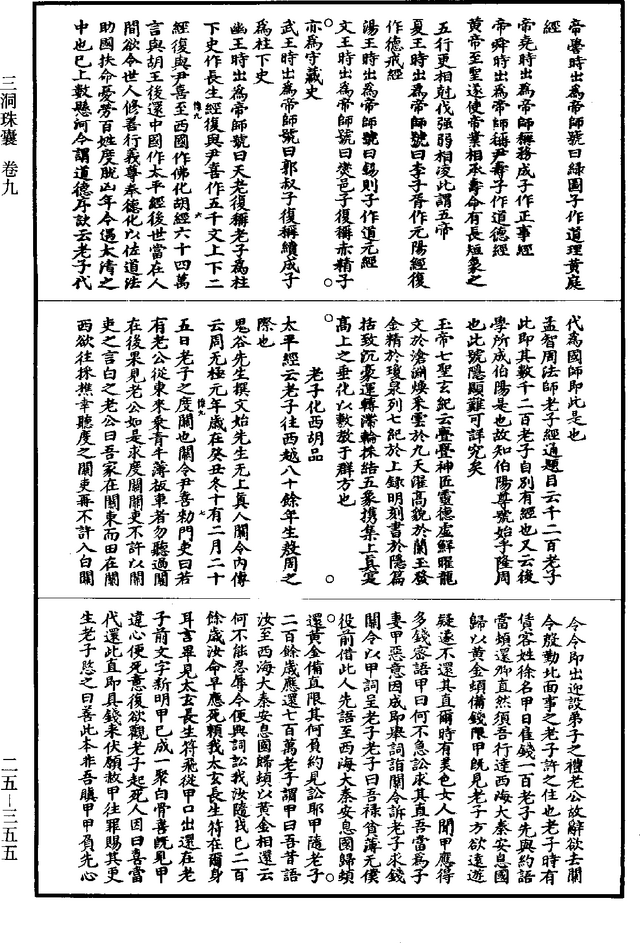 三洞珠囊 卷九
二五—三五五
帝嚳時出爲帝師號曰綠圖子作道理黃庭
經
帝堯時出爲帝師稱務成子作正事經
帝舜時出爲帝師稱尹壽子作道德經
黃帝至聖遂使帝業相承壽命有長短象之
五行更相剋伐強弱相凌此謂五帝
夏王時出爲帝師號曰李子胥作元陽經復
作德戒經
湯王時出爲帝師號曰錫則子作道元經
文王時出爲帝師號曰爕邑子復稱赤精子
亦爲守藏史
武王時出爲帝師號曰郭叔子復稱續成子
爲柱下史
幽王時出爲帝師號曰天老復稱老子爲柱
下史作長生經復與尹喜作五千文上下二
經復與尹喜至西國作佛化胡經六十四萬
言與胡王後還中國作太平經後世當在人
間欲令世人修善行義尊奉德化以佐道法
助國扶命憂勞百姓度脫凶年今遇太清之
中也已上數懸河今謂道德序訣云老子代
代爲國師即此是也
孟智周法師老子經通題目云千二百老子
此即其數千二百老子自別有經也又云後
學所成伯陽是也故知伯陽尊號始乎隆周
也此號隱顯難可詳究矣
玉帝七聖玄紀云亹亹神匠靈德虛鮮曜龍
文於滄淵煥釆雲於九天濯高貌於蘭玉發
金精於瓊泉列七紀於上錄明刻書於隱篇
括致沉豪運轉滯輪抹結五象携集上眞寔
高上之垂化以數教于群方也
老子化西胡品
太平經云老子往西越八十餘年生殷周之
際也
鬼谷先生撰文始先生无上眞人關令內傳
云周无極元年歲在癸丑冬十有二月二十
五日老子之度關也關令尹喜勑門吏曰若
有老公從東來乘青牛薄板車者勿聽過關
在後果見老公如是求度關關吏不許以關
吏之言白之老公曰吾家在關東而田在關
西欲往採樵幸聽度之關吏再不許入白關
令令即出迎設弟子之禮老公故辭欲去關
令殷勤北面事之老子許之住也老子時有
賃客姓徐名甲日雇錢一百老子先與約語
當頓還卿直然須吾行達西海大秦安息國
歸以黃金頓備錢限甲旣見老子方欲遠遊
疑遂不還其直爾時有美色女人聞甲應得
多錢密語甲曰何不急訟求其直吾當爲子
妻甲惡意因成即舉詞詣關令訴老子求錢
關令以甲詞呈老子老子曰吾祿貧薄无僕
役前借此人先語至西海大秦安息國歸頓
還黃金備直限其何負約見訟耶甲隨老子
二百餘歲應還七百萬老子謂甲曰吾昔語
汝至西海大秦安息國歸頓以黃金相還云
何不能忍辱令便興詞訟我汝隨我已二百
餘歲汝命早應死賴我太玄長生符在爾身
耳言畢見太玄長生符飛從甲口出還在老
子前文字新明甲已成一聚白骨喜旣見甲
違心便死意復欲觀老子起死人因曰喜當
代還此直即具錢來伏願赦甲往罪賜其更
生老子愍之曰善此本非吾瞋甲甲負先心